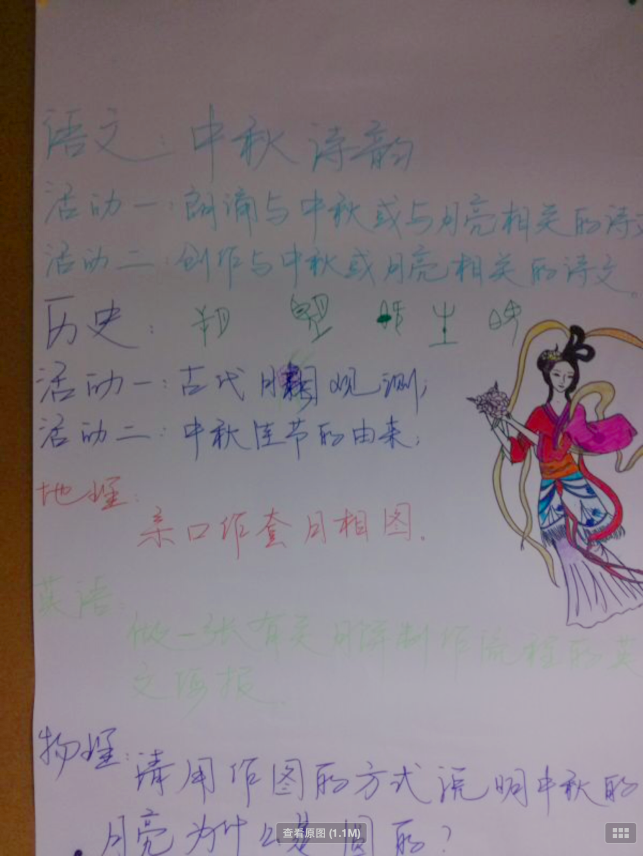 语文：中秋诗韵
活动一：朗诵与中秋或与月亮相关的诗
活动二：创作与中秋或月亮相关的诗文。
历史：
活动一：古代月相观测；
活动二：中秋佳节的由来。
地理：
亲口作套月相图.
英语：
做一张有关月饼制作流程的英
文海报.
物理：请用作图的方式说明中秋的
月亮为什么是圆的？
查看原图 (1.1M)